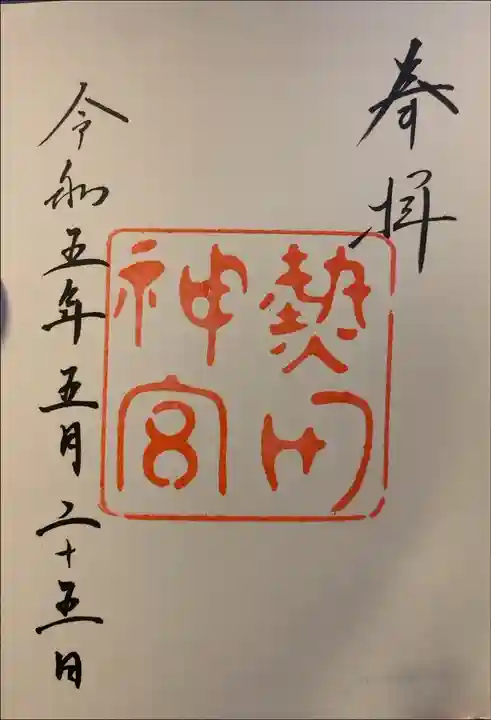 奉拝
熱田
神宮
令和五年五月二十五日